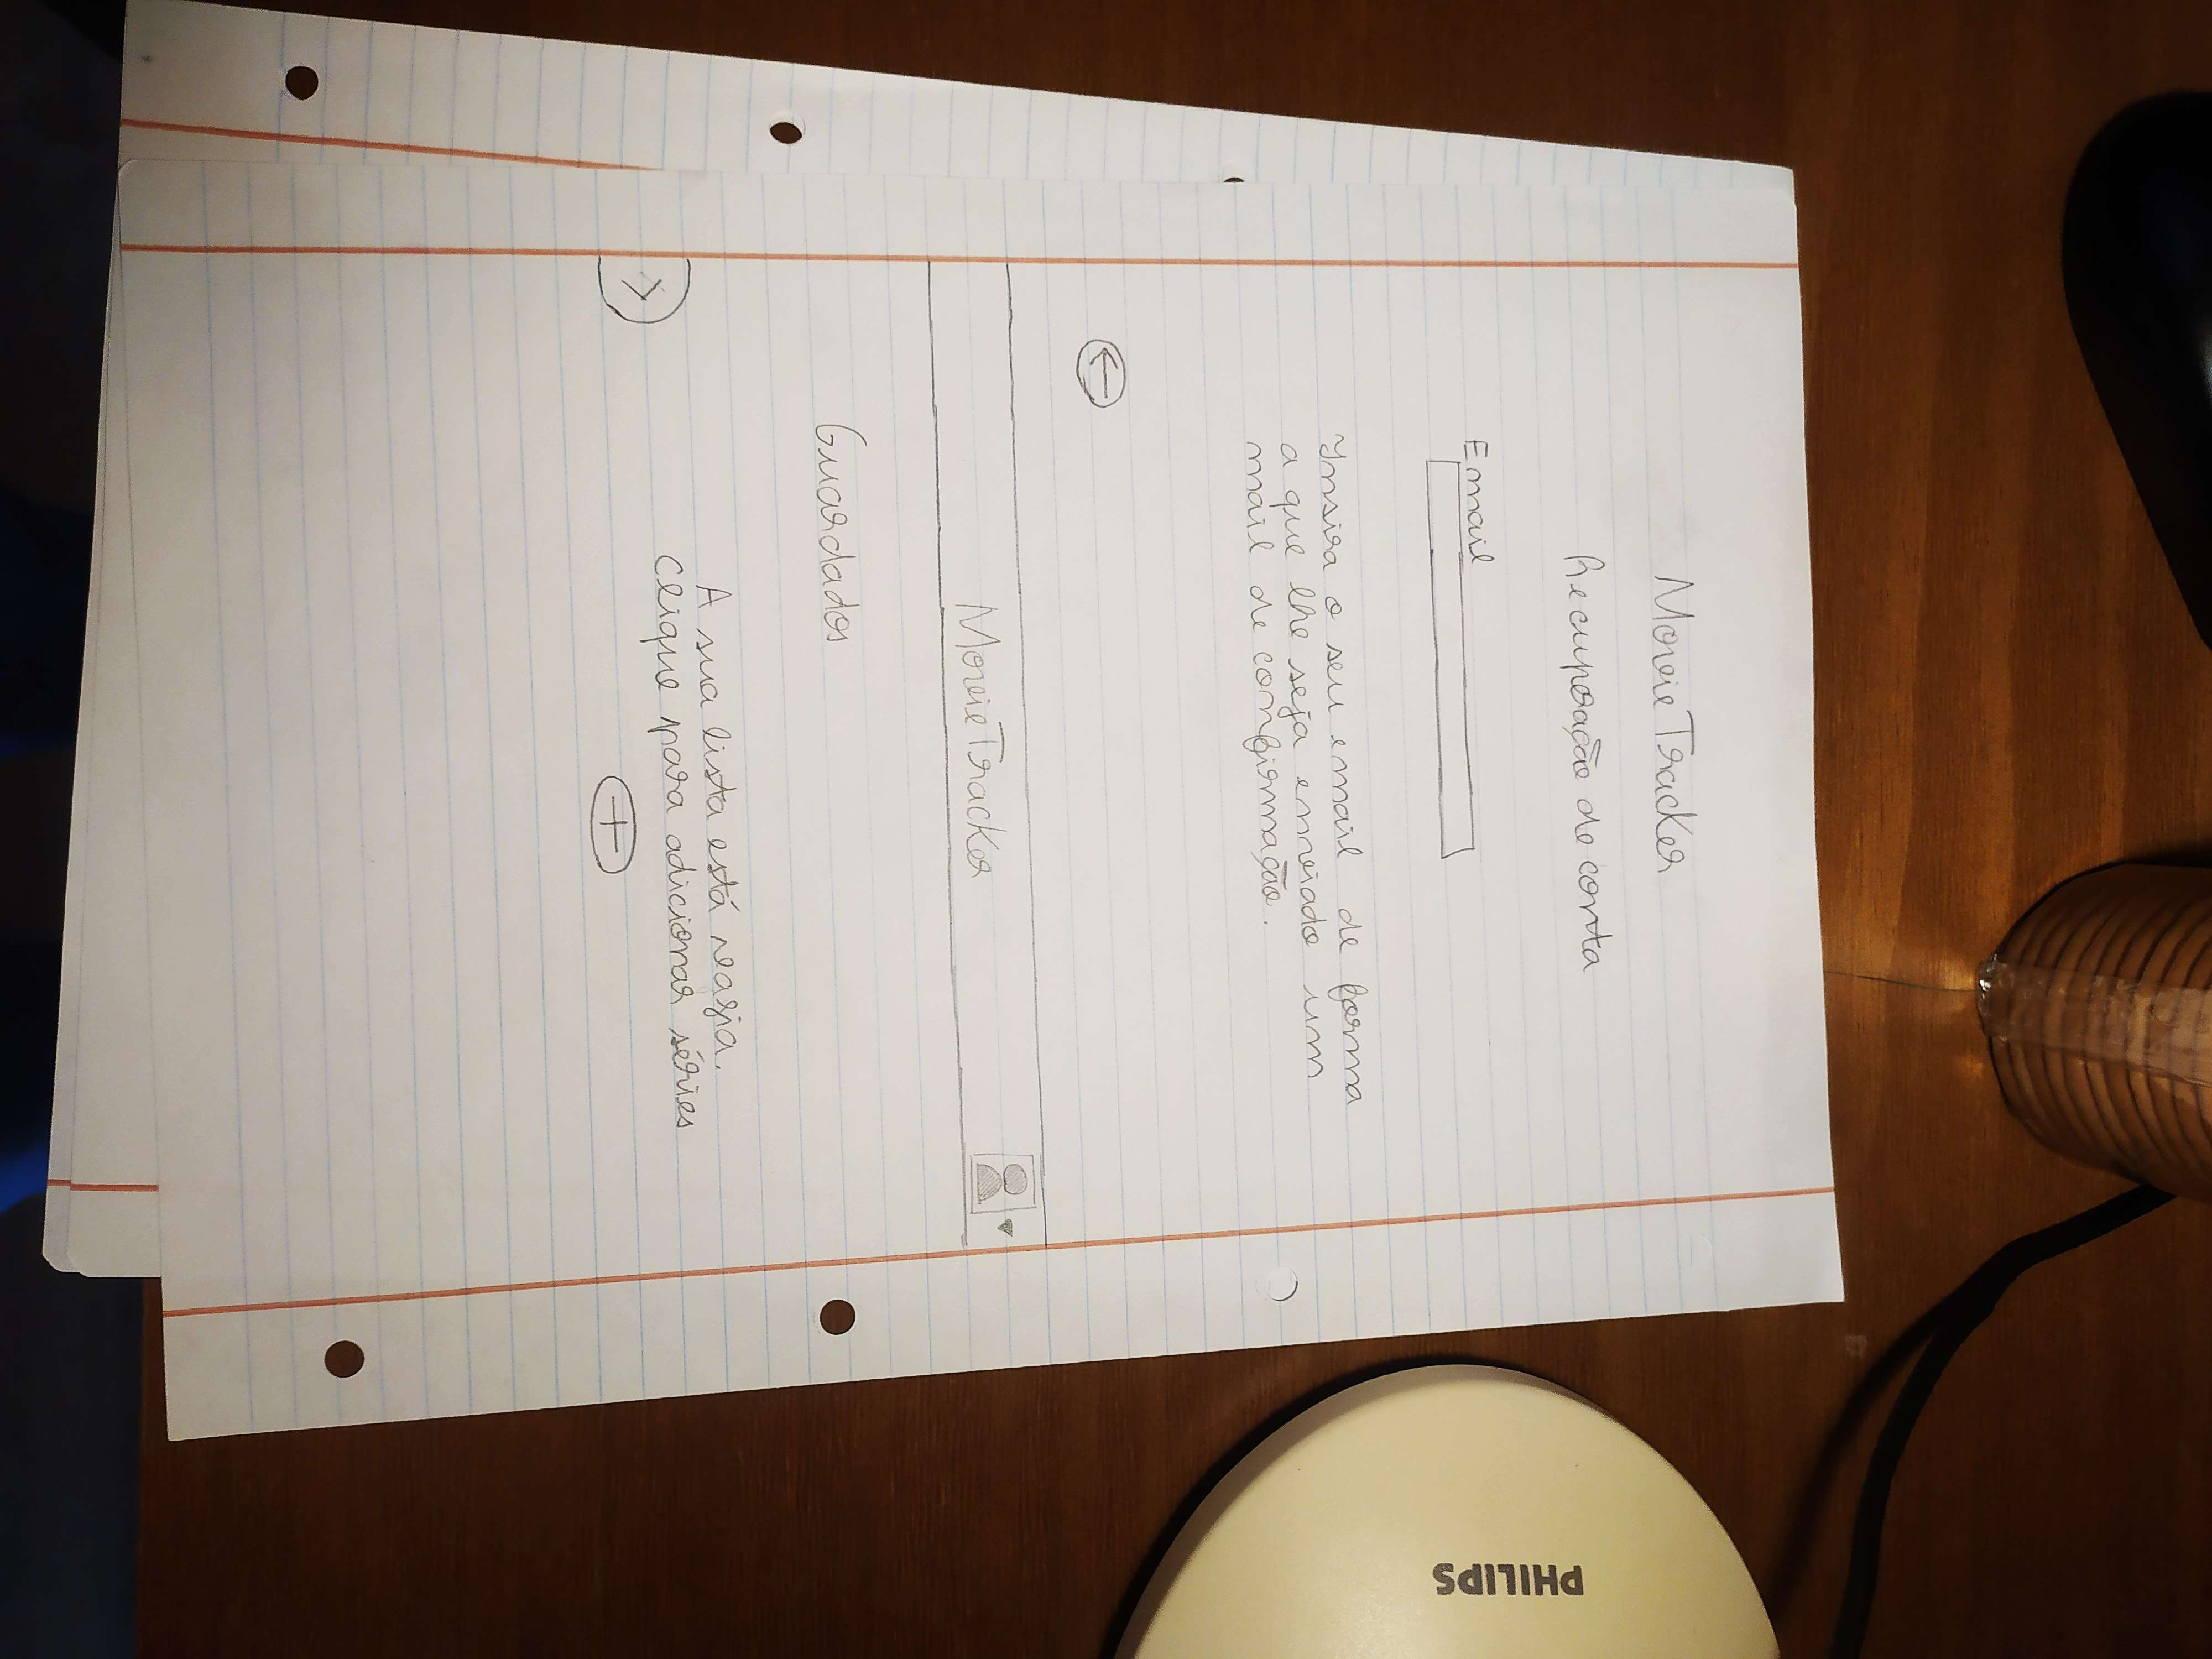 MovieTracker
Recuperação de conta
Email
Insira o seu email de forma
a que lhe seja enviado um
mail de confirmação.
MovieTracker
Guardados
A sua lista está vazia.
Clique para adicionar séries
PHILIPS